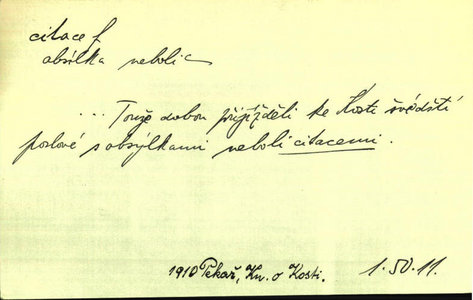 citace f
obsílka neboli c
... Touž dobou přijížděli ke Kosti švédští
poslové s obsýlkami neboli citacemi.
1910 Pekař, Kn. o Kosti. 1.50.11.